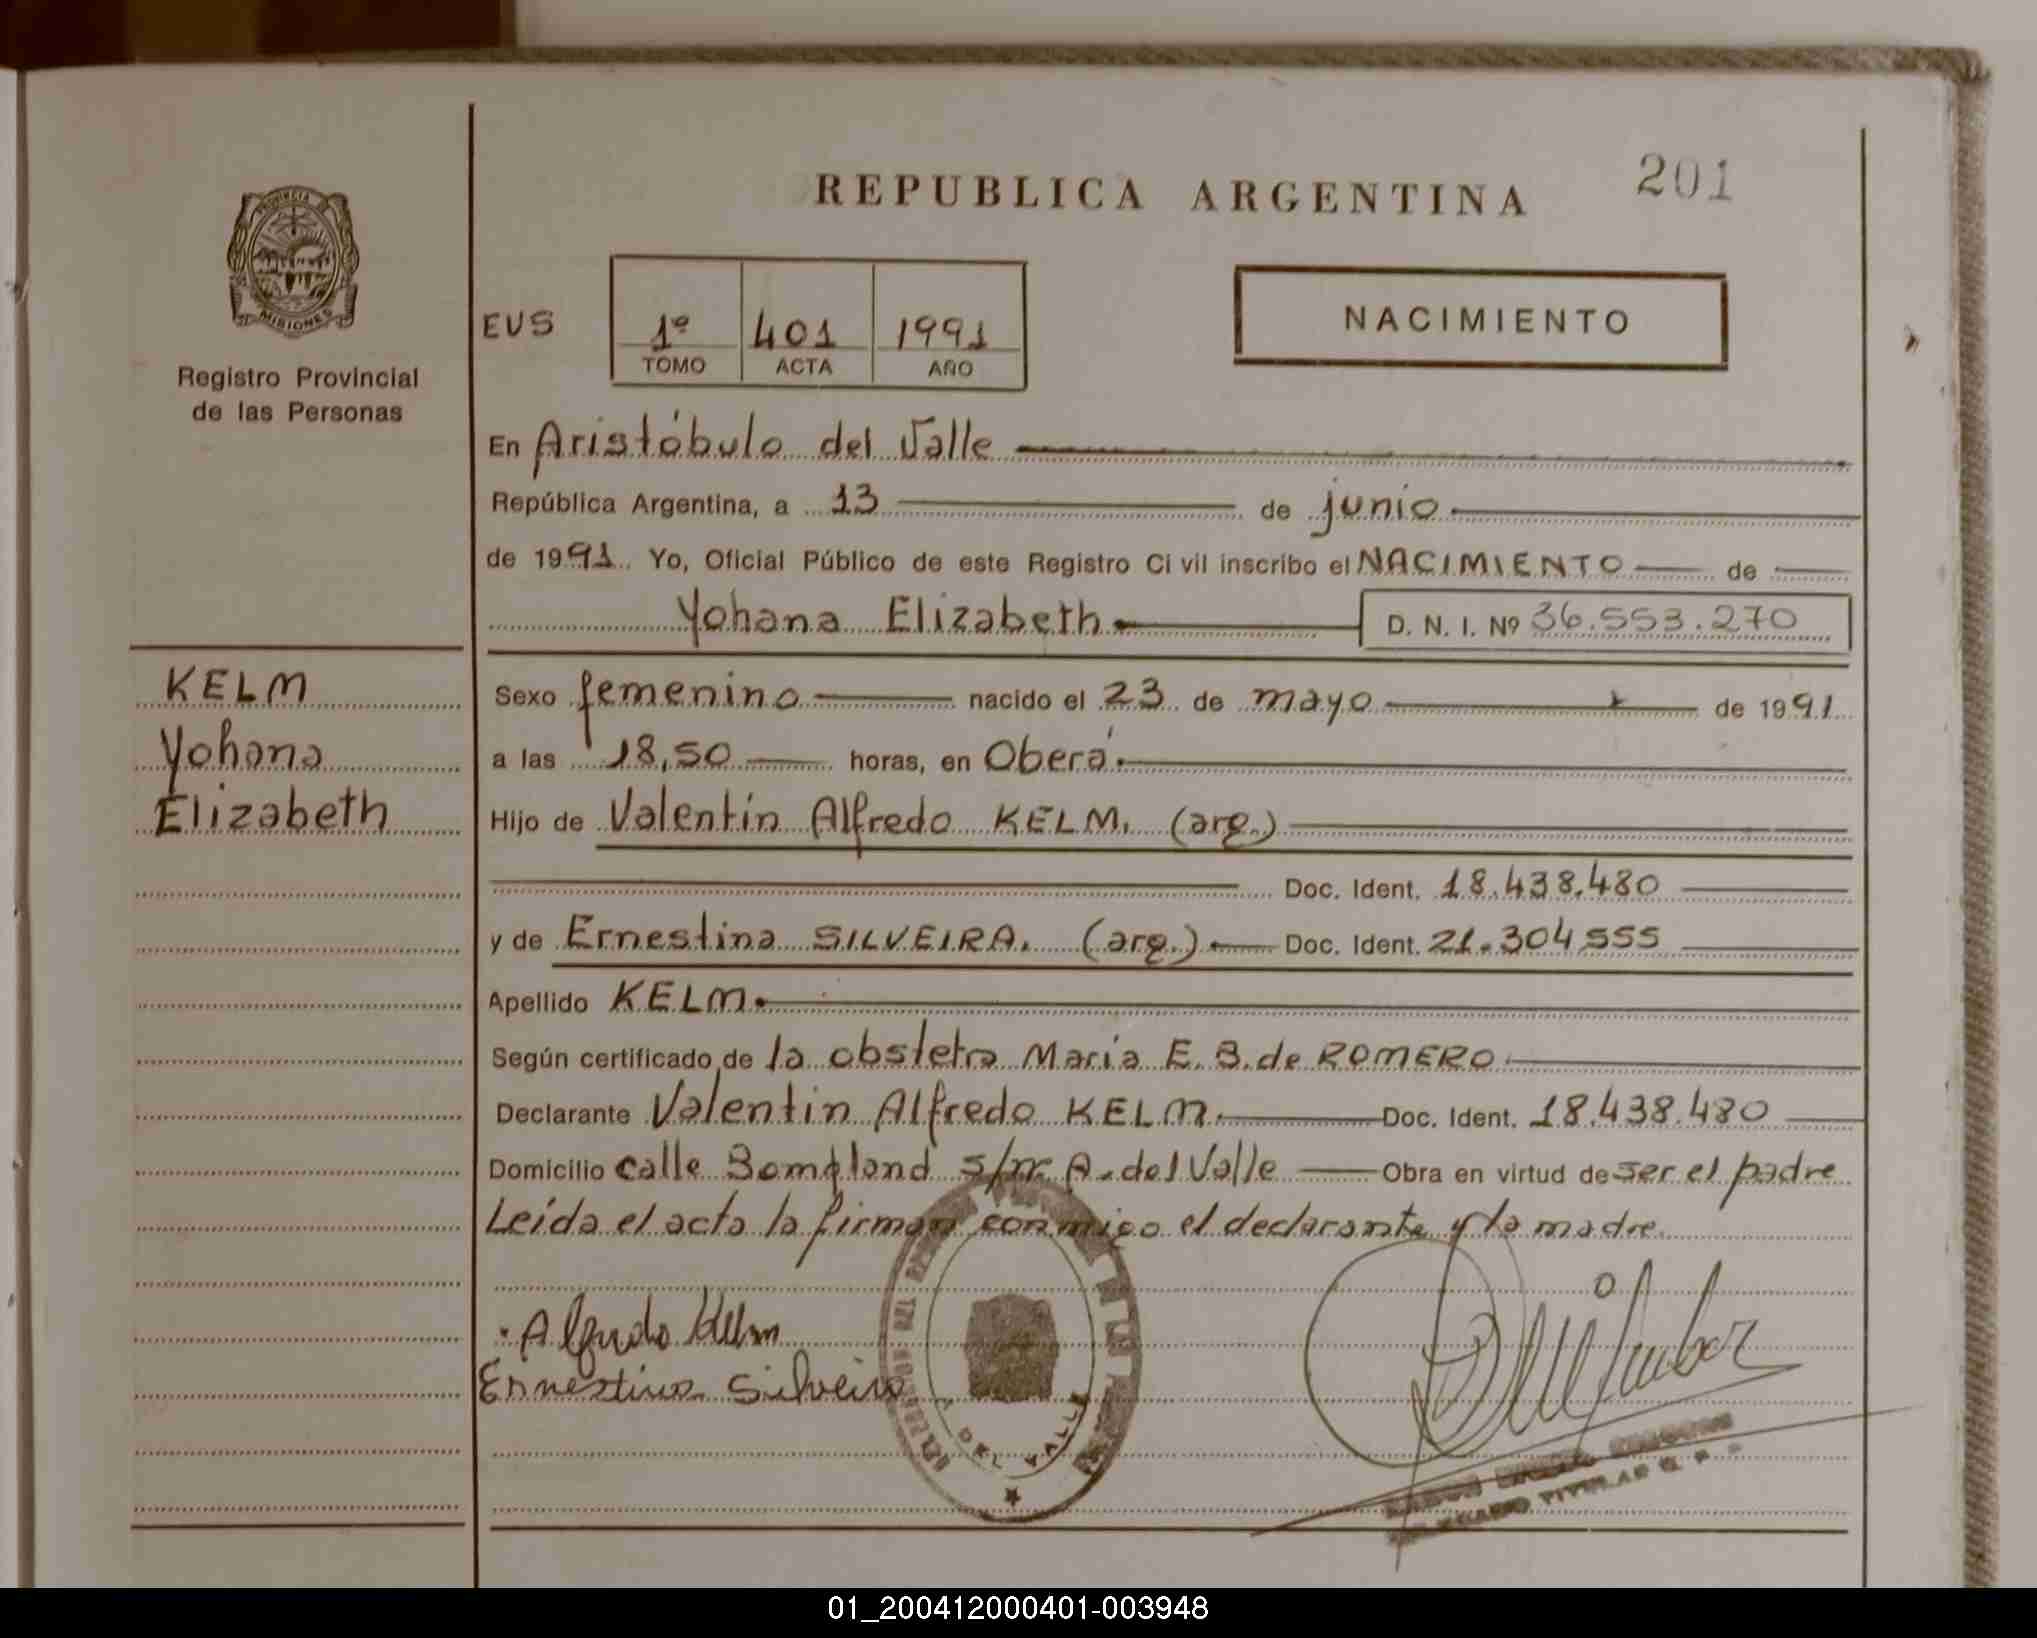 REPUBLICA ARGENTINA 201
PROVINCIA DE
MISIONES
Registro Provincial
de las Personas
EUS
1º 401 1991
TOMO ACTA AÑO
NACIMIENTO
En Aristóbulo del Valle
República Argentina, a 13 de junio
de 1991. Yo, Oficial Público de este Registro Civil inscribo el NACIMIENTO de
Yohana Elizabeth D. N. I. Nº 36.553.270
KELM
Yohana
Elizabeth
Sexo femenino nacido el 23 de mayo de 1991
a las 18,50 horas, en Oberá.
Hijo de Valentín Alfredo KELM. (arg.)
Doc. Ident. 18.438.480
y de Ernestina SILVEIRA. (arg.) Doc. Ident. 21.304.555
Apellido KELM.
Según certificado de la obstetra María E. B. de ROMERO
Declarante Valentín Alfredo KELM. Doc. Ident. 18.438.480
Domicilio calle s/nr. A. del Valle Obra en virtud de ser el padre
Leída el acta la firman conmigo el declarante y la madre.
Alfredo Kelm
Ernestina Silveira
DEL VALLE
TITULAR
01_200412000401-003948